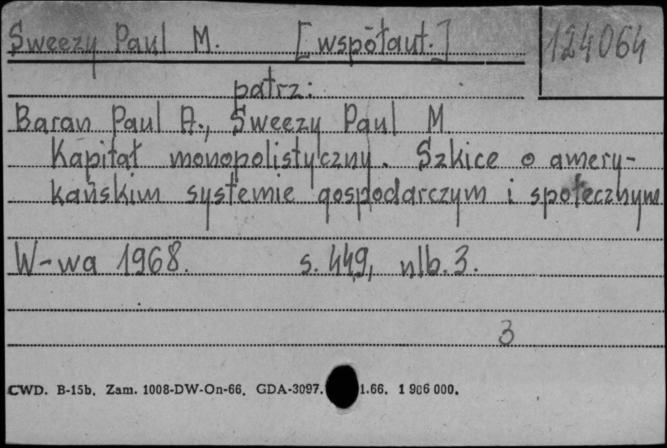 Sweezy Paul M. [współaut.] 124064
patrz:
Baran Paul A., Sweezy Paul M
Kapitał monopolistyczny. Szkice o amery-
kańskim systemie gospodarczym i społecznym
W-wa 1968. s. 449, nlb. 3.
3
CWD. B-15b. Zam. 1008-DW-On-66. GDA-3097. 1.66. 1 906 000.